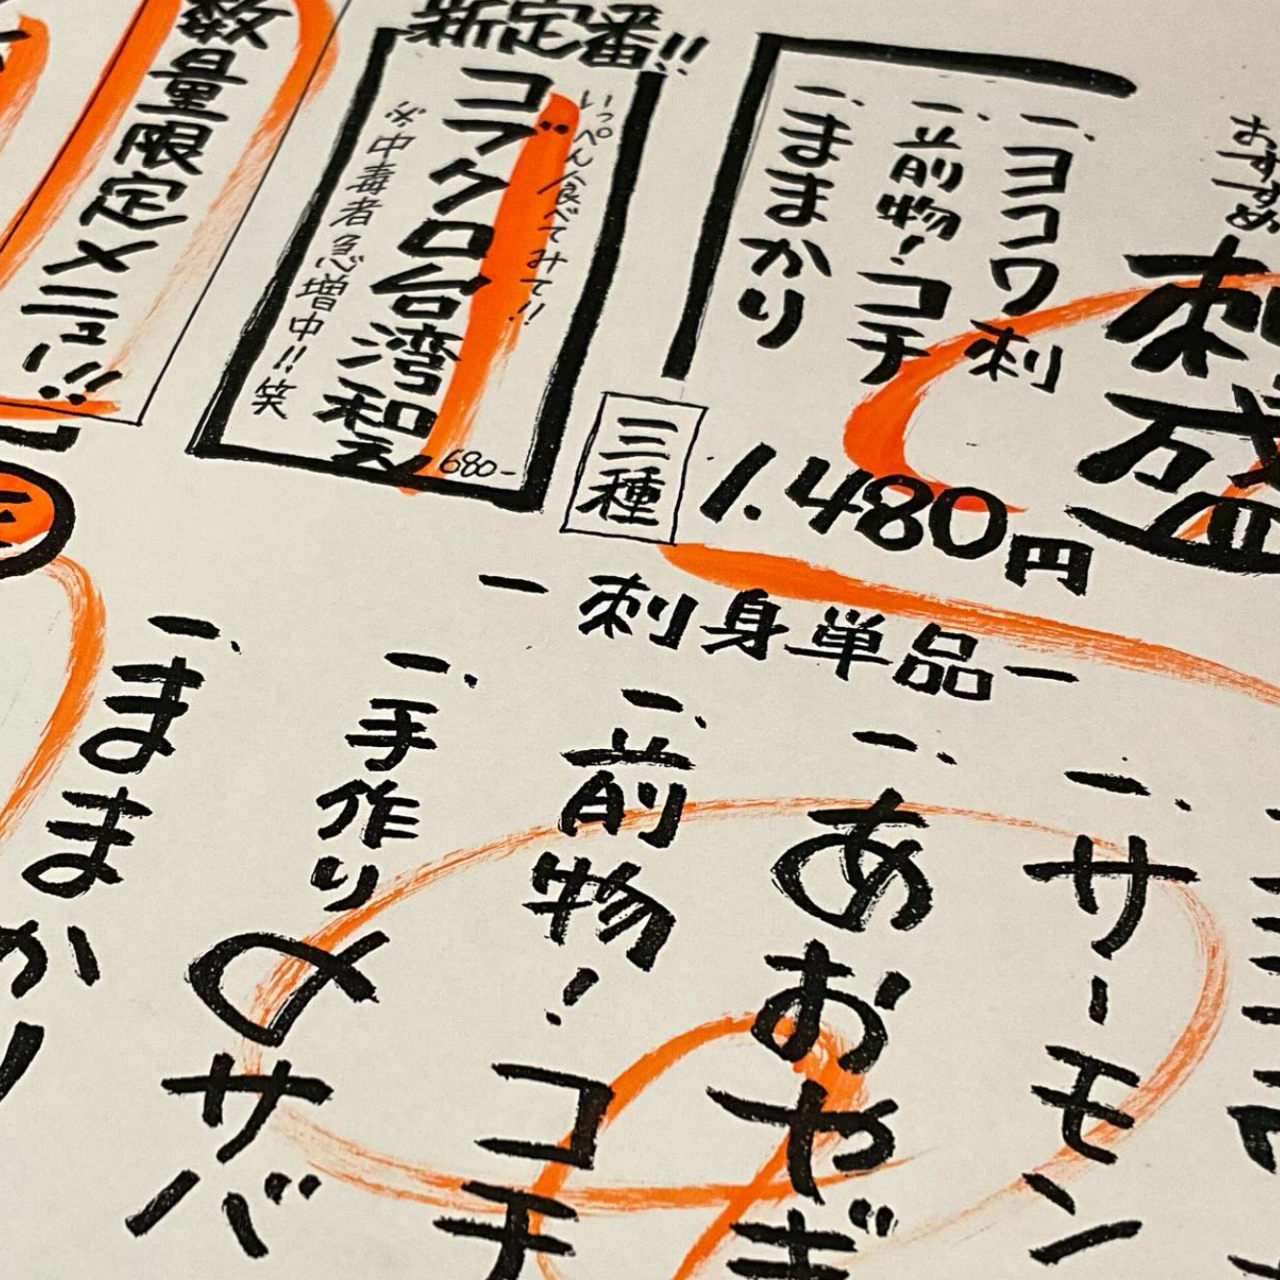 おすすめ
刺盛
一、ヨコワ刺
一、立前物！コチ
一、ままかり
三種
1.480円
新定番!!
いっぺん食べてみて!!
コブクロ台湾和え
680-
※中毒者急増中!!笑
数量限定メニュー!!
ー刺身単品ー
一、サーモン
一、あおやぎ
一、立前物！コチ
一、手作り〆サバ
一、ままかり